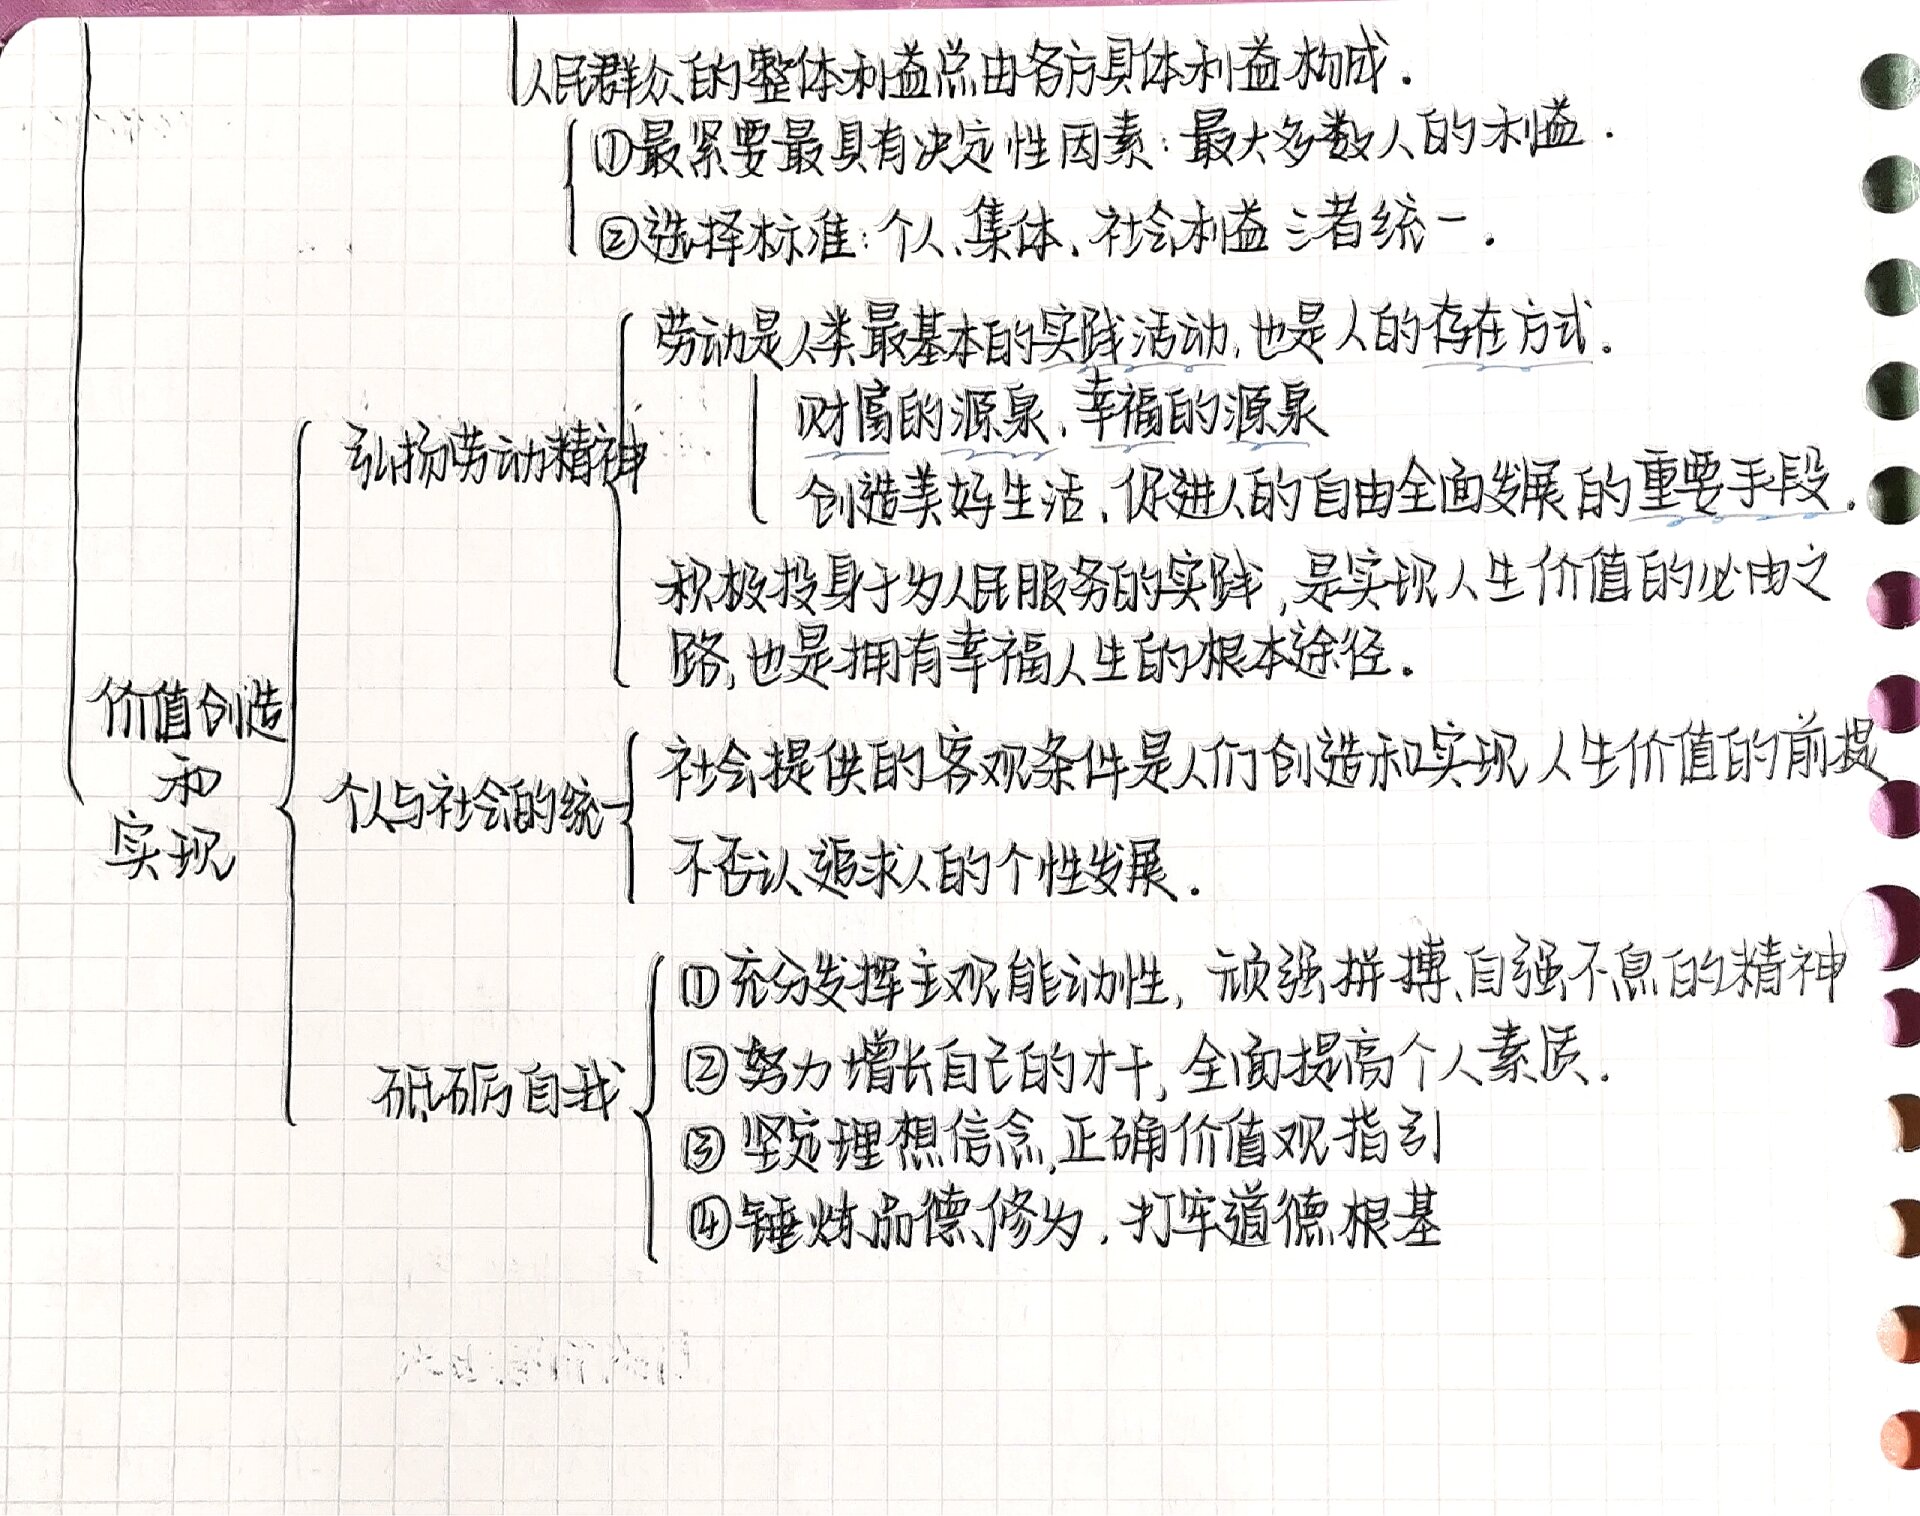 人民群众的整体利益总由各方具体利益构成.
①最紧要最具有决定性因素:最大多数人的利益.
②选择标准:个人、集体、社会利益三者统一.
劳动是人类最基本的实践活动,也是人的存在方式.
财富的源泉、幸福的源泉
弘扬劳动精神
创造美好生活,促进人的自由全面发展的重要手段.
积极投身于为人民服务的实践,是实现人生价值的必由之
路,也是拥有幸福人生的根本途径.
价值创造
和
实现
社会提供的客观条件是人们创造和实现人生价值的前提
个人与社会的统一
不否认追求人的个性发展.
①充分发挥主观能动性,顽强拼搏、自强不息的精神
②努力增长自己的才干,全面提高个人素质.
砥砺自我
③坚定理想信念,正确价值观指引
④锤炼品德修为,打牢道德根基